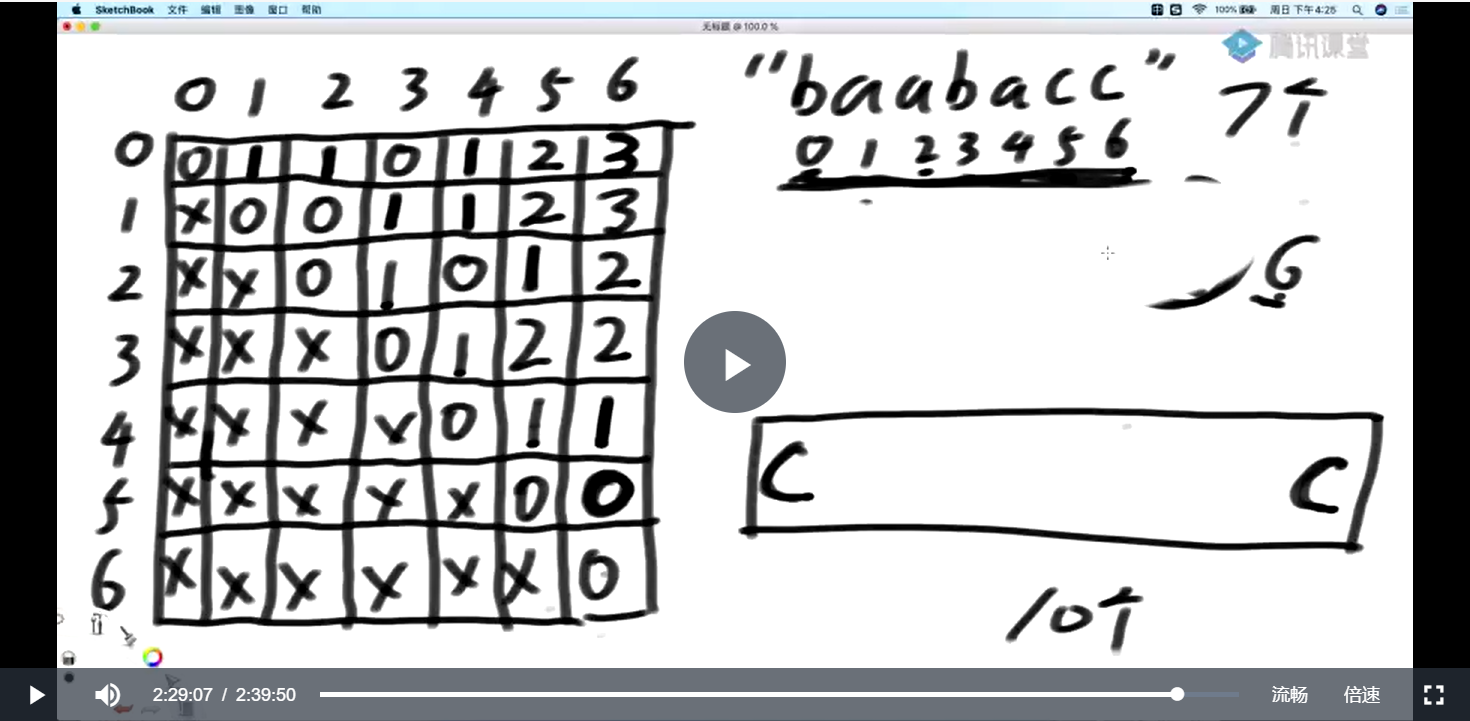 SketchBook 文件 编辑 图像 窗口 帮助 100% 周日 下午4:25
无标题 @ 100.0 %
腾讯课堂
0 1 2 3 4 5 6
0 0 1 1 0 1 2 3
1 X 0 0 1 1 2 3
2 X X 0 1 0 1 2
3 X X X 0 1 2 2
4 X X X X 0 1 1
5 X X X X X 0 0
6 X X X X X X 0
"baabacc" 7个
0 1 2 3 4 5 6
6
C C
10个
2:29:07 / 2:39:50 流畅 倍速